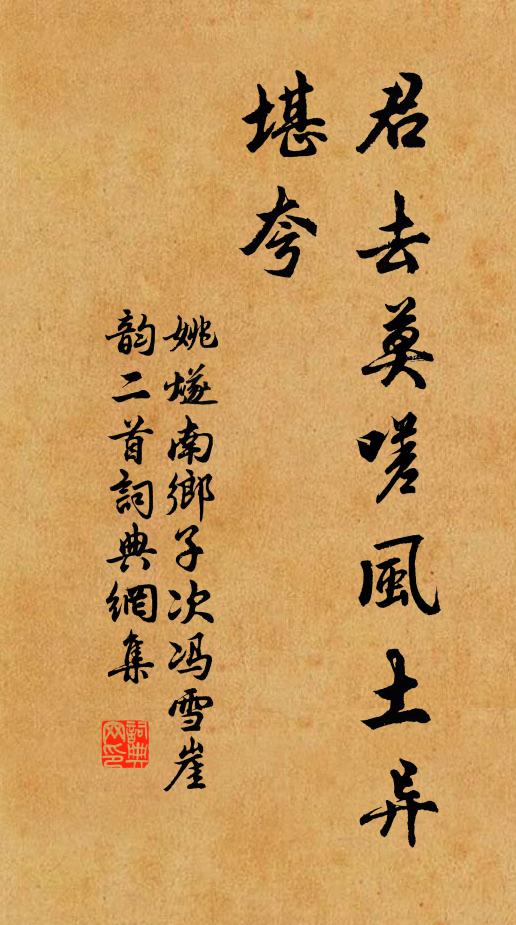 君去莫嗟風土异
堪夸
姚燧南鄉子次冯雪崖
韵二首詞典網集
詞典
网印